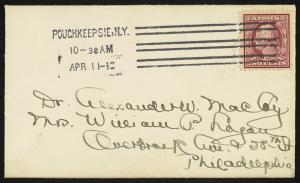 POUGHKEEPSIE, N.Y.
10-30 AM
APR 11-10
U.S. POSTAGE
Dr. Alexander W. MacCoy
Mrs. William P. Logan
Overbrook Ave &
Philadelphia